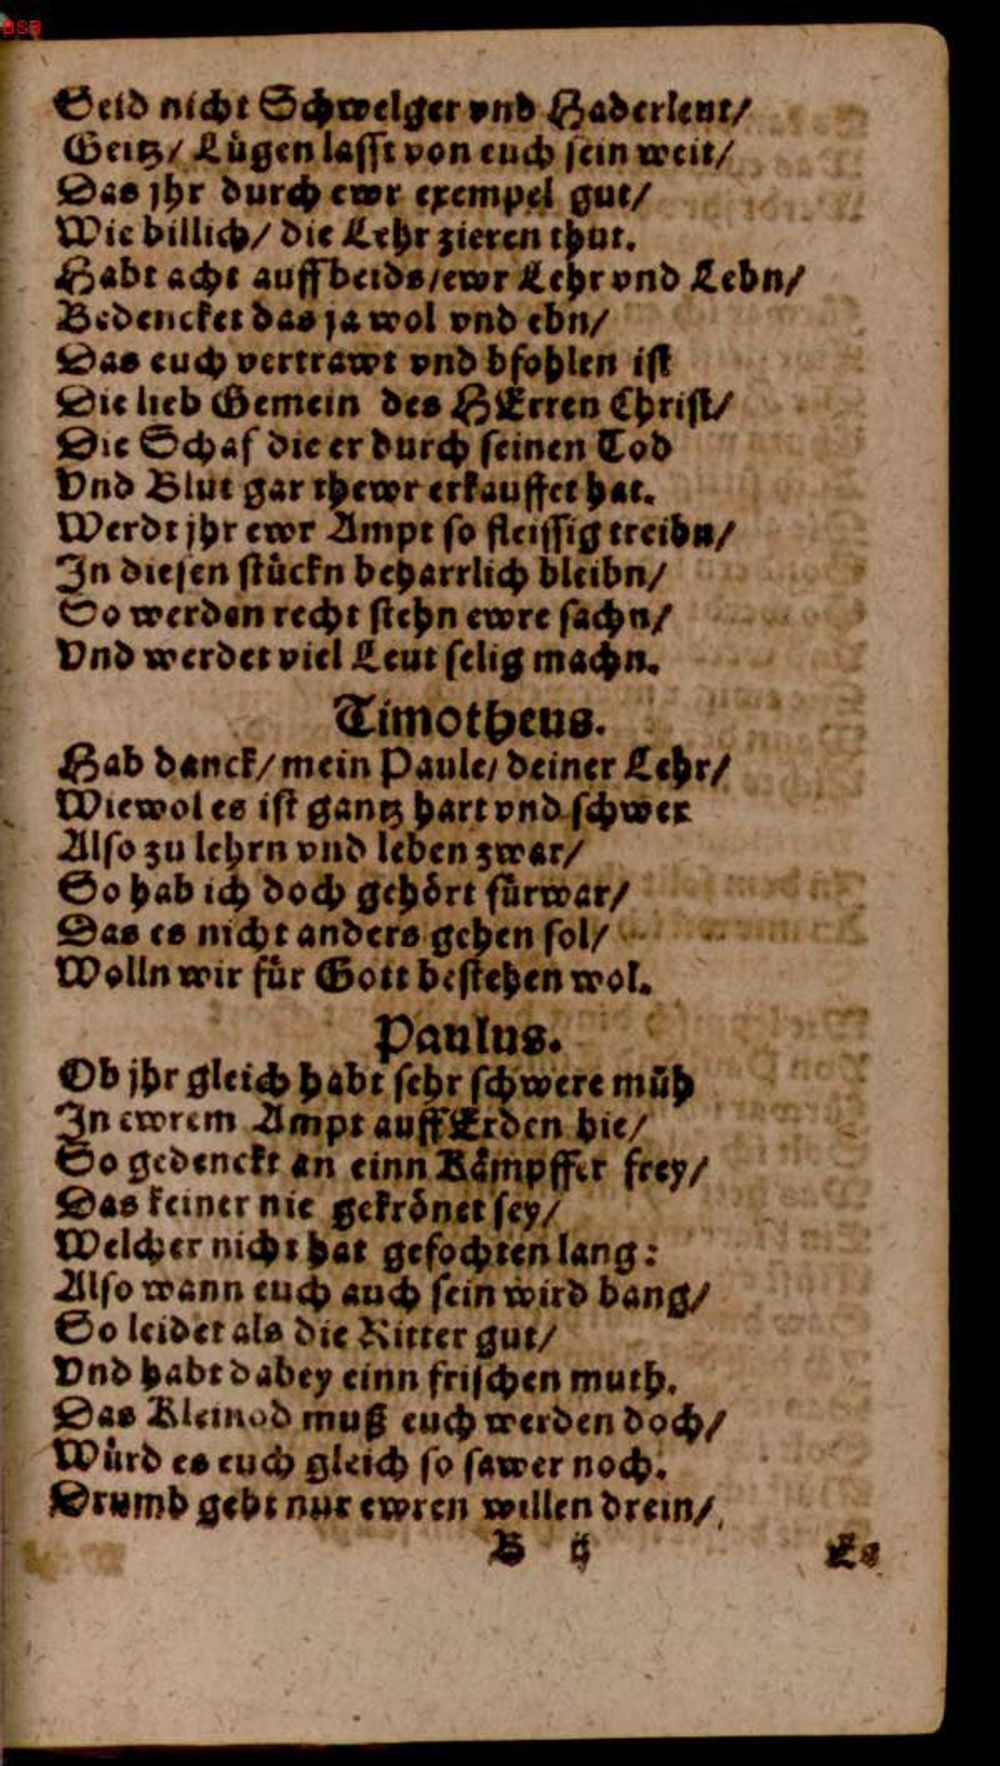 BSB
Seid nicht Schwelger vnd Haderleut/
Geitz/ Lügen lasst von euch sein weit/
Das jhr durch ewr exempel gut/
Wie billich/ die Lehr zieren thut.
Habt acht auff beids/ewr Lehr vnd Lebn/
Bedencket das ja wol vnd ebn/
Das euch vertrawt vnd bfohlen ist
Die lieb Gemein des HErren Christ/
Die Schaf die er durch seinen Tod
Vnd Blut gar thewr erkauffet hat.
Werdt jhr ewr Ampt so fleissig treibn/
In diesen stückn beharrlich bleibn/
So werden recht stehn ewre sachn/
Vnd werdet viel Leut selig machn.
Timotheus.
Hab danck/mein Paule/ deiner Lehr/
Wiewol es ist gantz hart vnd schwer
Also zu lehrn vnd leben zwar/
So hab ich doch gehört fürwar/
Das es nicht anders gehen sol/
Wolln wir für Gott bestehen wol.
Paulus.
Ob jhr gleich habt sehr schwere müh
In ewrem Ampt auff Erden hie/
So gedenckt an einn Kämpffer frey/
Das keiner nie gekrönet sey/
Welcher nicht hat gefochten lang:
Also wann euch auch sein wird bang/
So leidet als die Ritter gut/
Vnd habt dabey einn frischen muth.
Das Kleinod muß euch werden doch/
Würd es euch gleich so sawer noch.
Drumb gebt nur ewren willen drein/
B ij Es